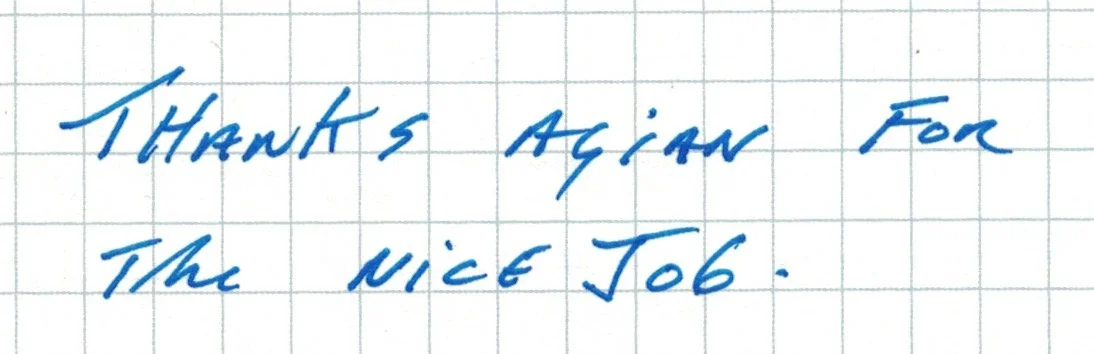 THANKS AGiAN FOR
The NiCE JOb.